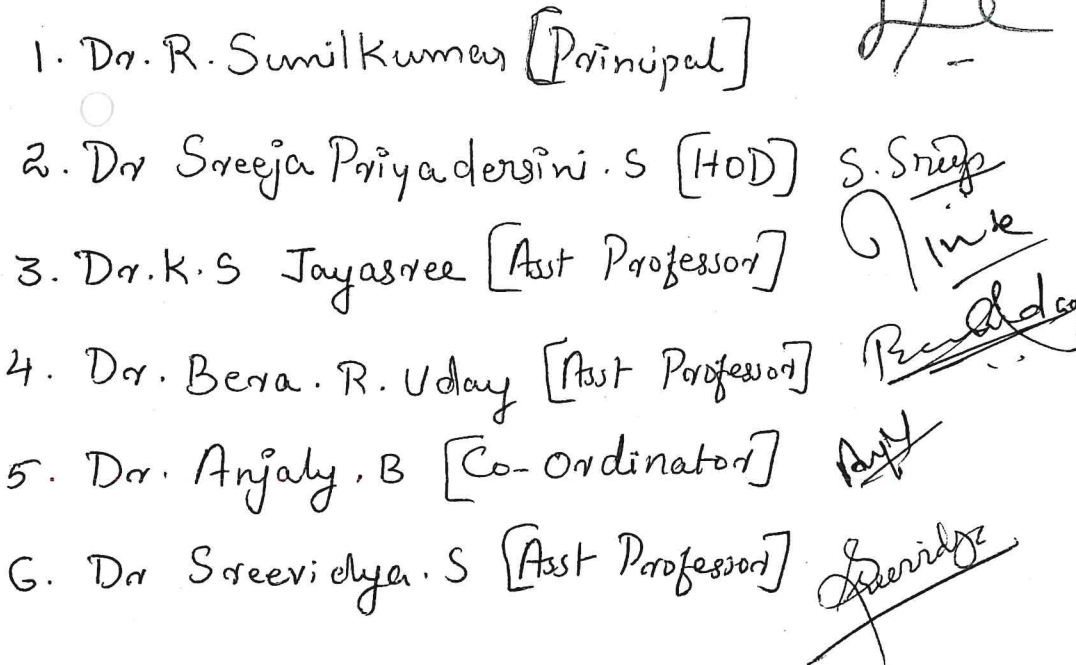 1. Dr. R. Sunilkumar [Principal]
2. Dr Sreeja Priyadersini. S [HOD] S. Sreeja
3. Dr. K. S Jayasree [Asst Professor]
4. Dr. Bera. R. Uday [Asst Professor]
5. Dr. Anjaly. B [Co-ordinator]
6. Dr Sreevidya. S [Asst Professor] Sreevidya